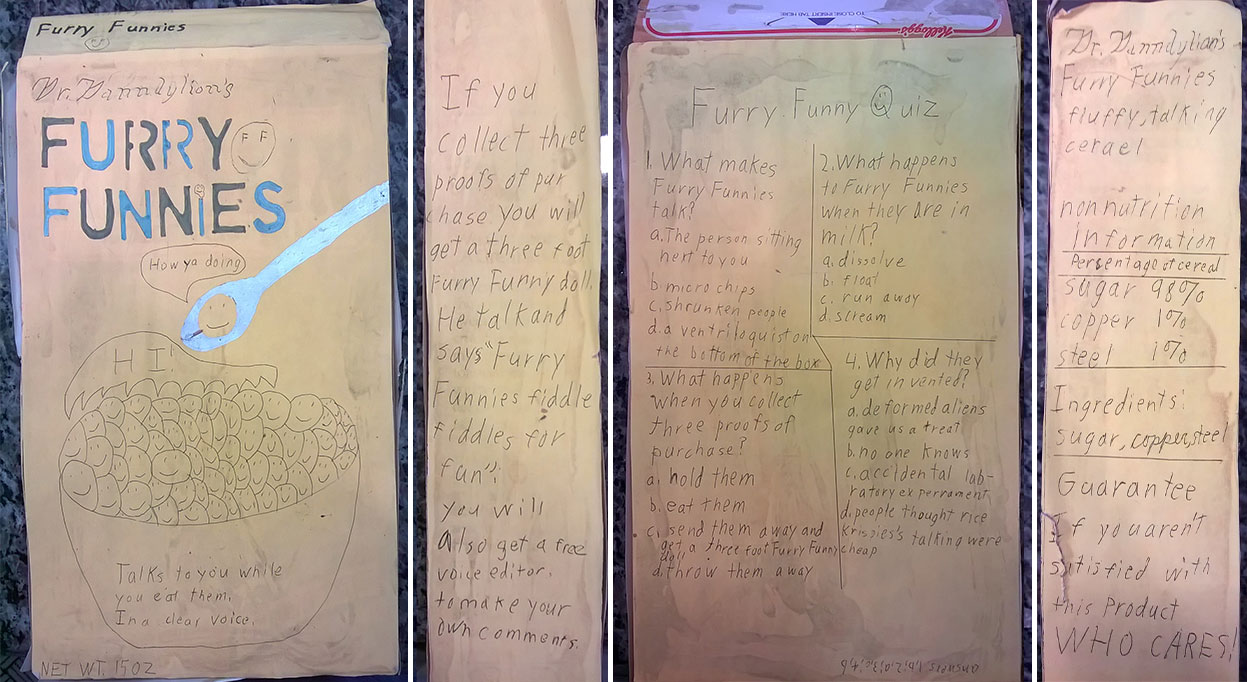 Furry Funnies
FF
Dr. Danndylion's
FURRY
FF
FUNNIES
How ya doing
HI!
Talks to you while
you eat them.
In a clear voice.
NET WT. 15 OZ
If you
collect three
proofs of pur
chase you will
get a three foot
Furry Funny doll.
He talk and
says "Furry
Funnies fiddle
fiddles for
fun";
you will
also get a free
voice editor,
to make your
own comments.
TO CLOSE INSERT TAB HERE
Kellogg's
Furry Funny Quiz
1. What makes
Furry Funnies
talk?
a. The person sitting
nert to you
b. micro chips
c. shrunken people
d. a ventriloquist on
the bottom of the box
2. What happens
to Furry Funnies
when they are in
milk?
a. dissolve
b. float
c. run away
d. scream
3. What happens
when you collect
three proofs of
purchase?
a. hold them
b. eat them
c. send them away and
get a three foot Furry Funny
doll
d. throw them away
4. Why did they
get in vented?
a. deformed aliens
gave us a treat
b. no one knows
c. accidental lab-
ratory experrament
d. people thought rice
Krispies's talking were
cheap
answers 1,b;2,a;3,c;4,b
Dr. Danndylion's
Furry Funnies
fluffy, talking
cerael
non nutrition
information
Percentage of cereal
sugar 98%
copper 1%
steel 1%
Ingredients:
sugar, copper, steel
Guarantee
If you aren't
satisfied with
this Product
WHO CARES!